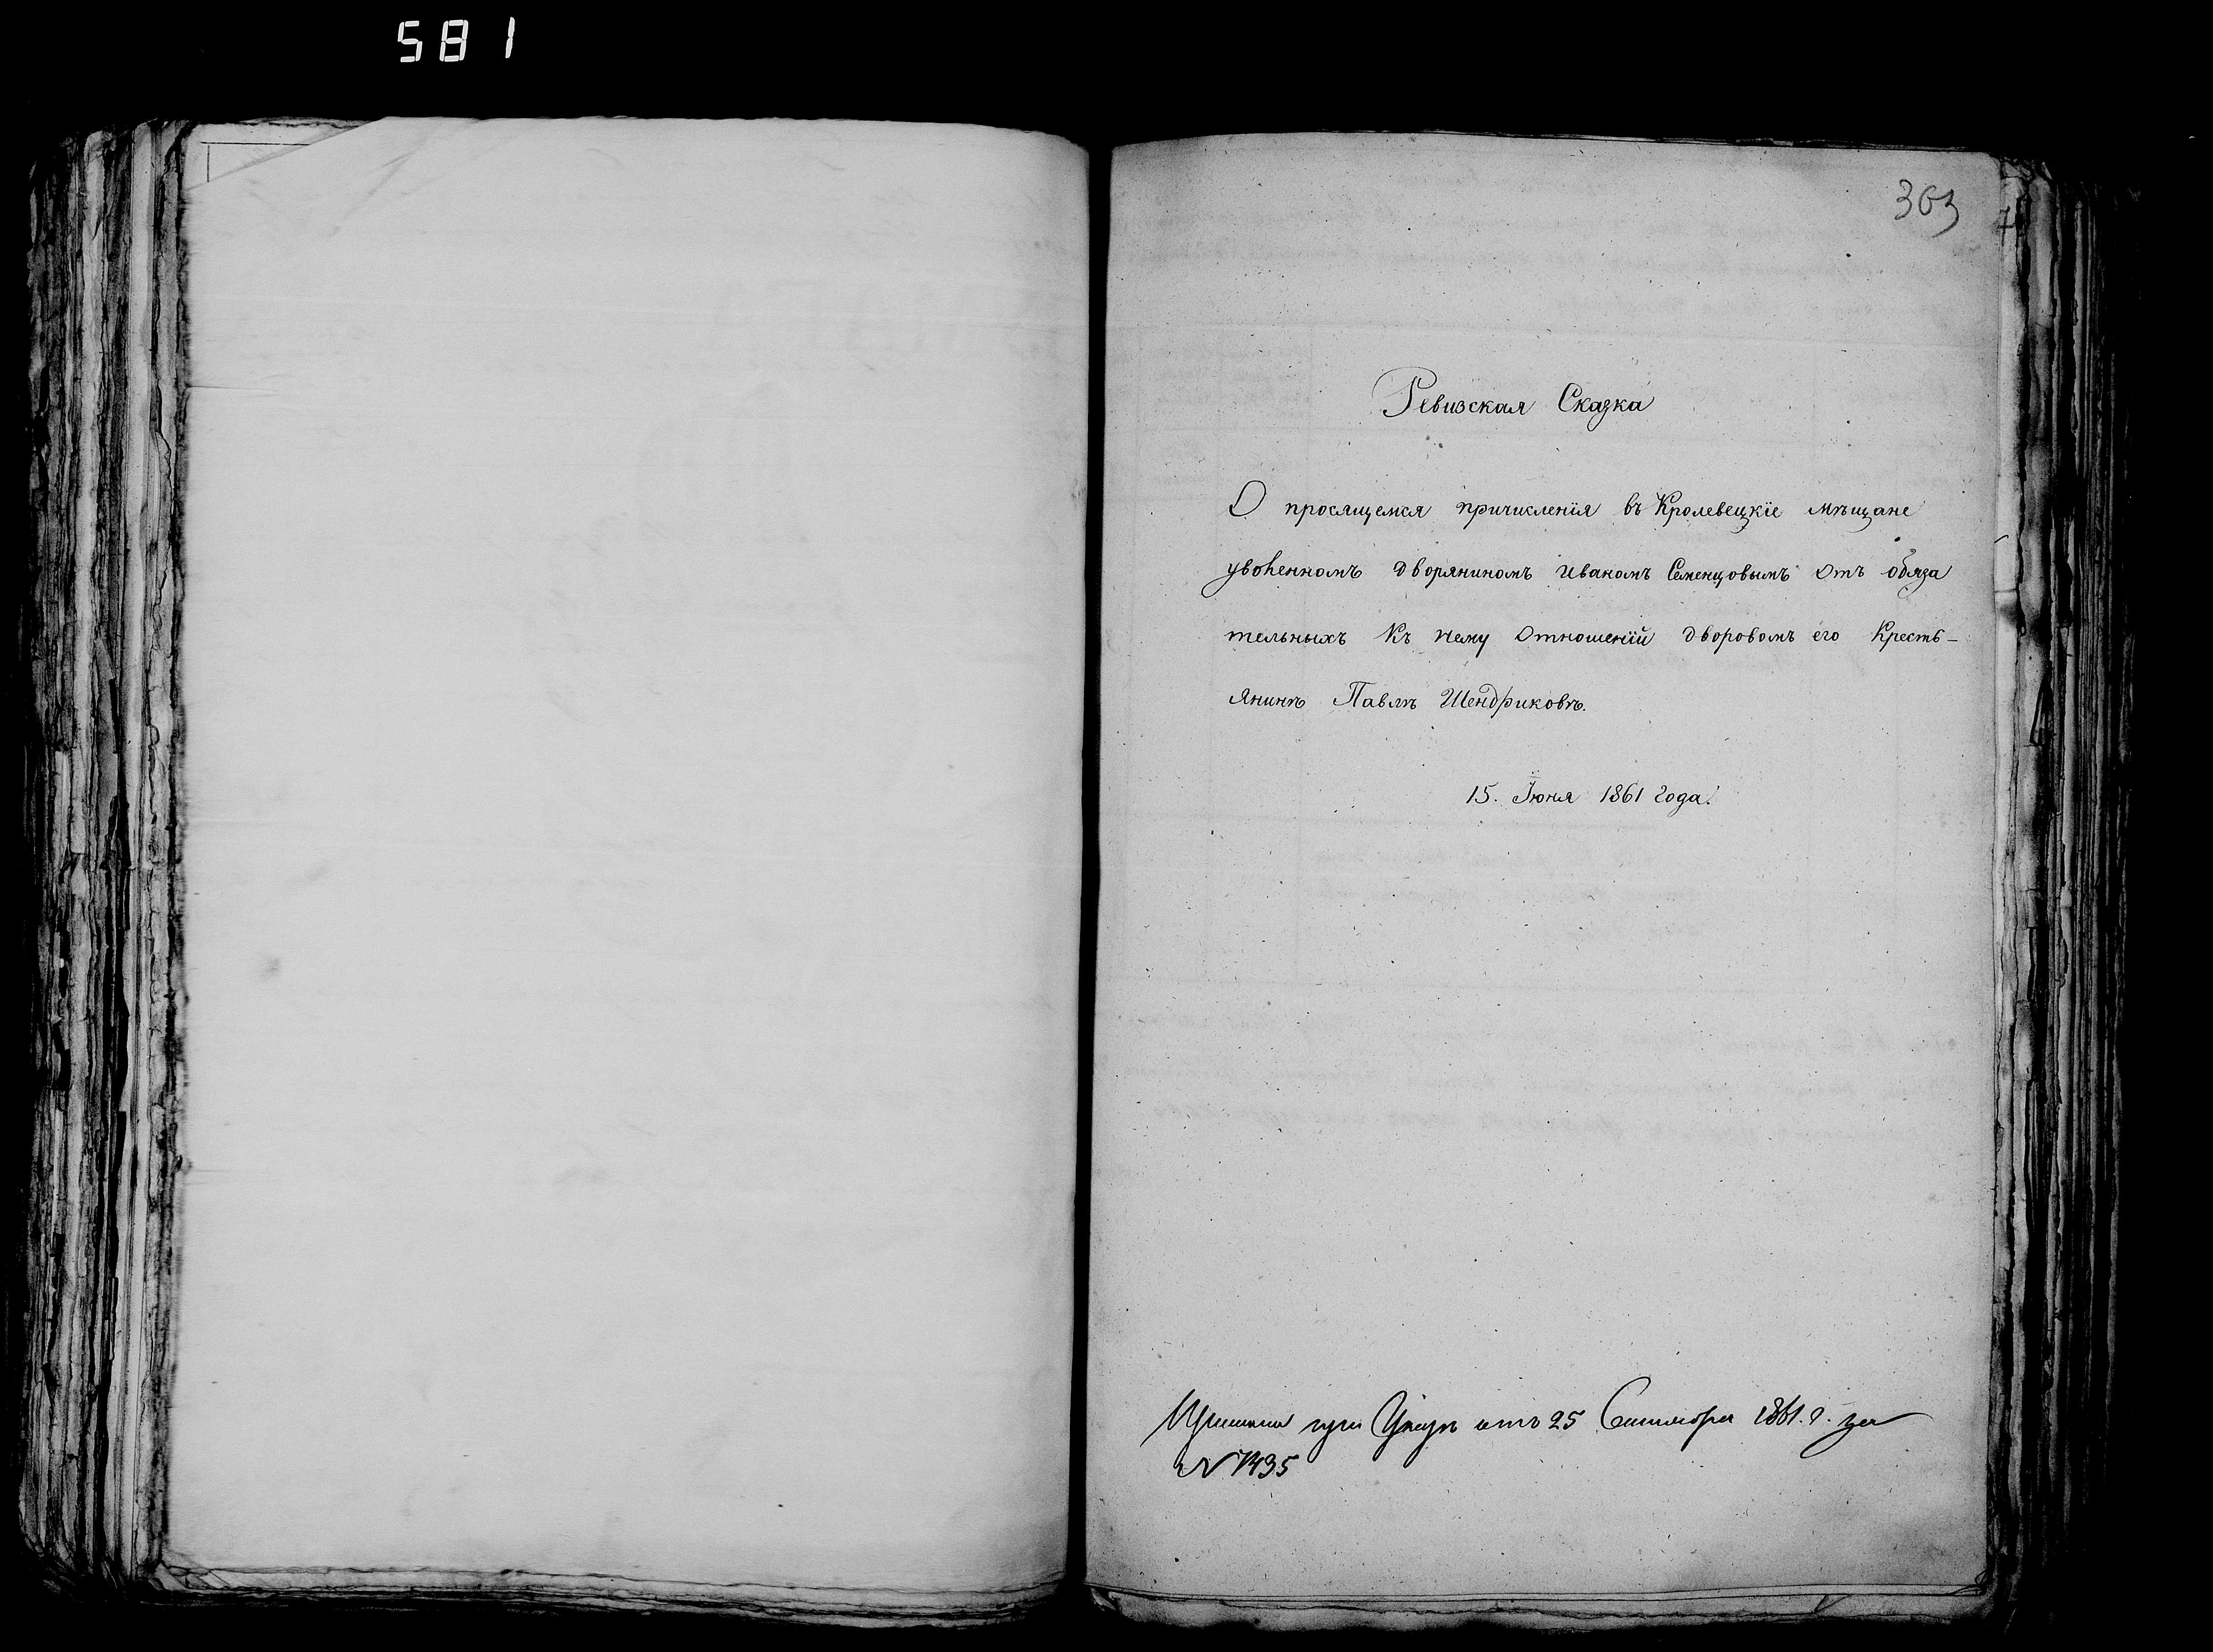 581
363
Ревизская Сказка
О просящемся причисления въ Кролевецкіе мѣщане
уволенномъ дворяниномъ Иваномъ Семенцовымъ отъ обяза
тельныхъ къ нему отношеній дворовомъ его кресть-
янинѣ Павлѣ Шендриковѣ.
15. Іюня 1861 года.
при Указѣ отъ 25 Сентября 1861. г. за
№ 1435